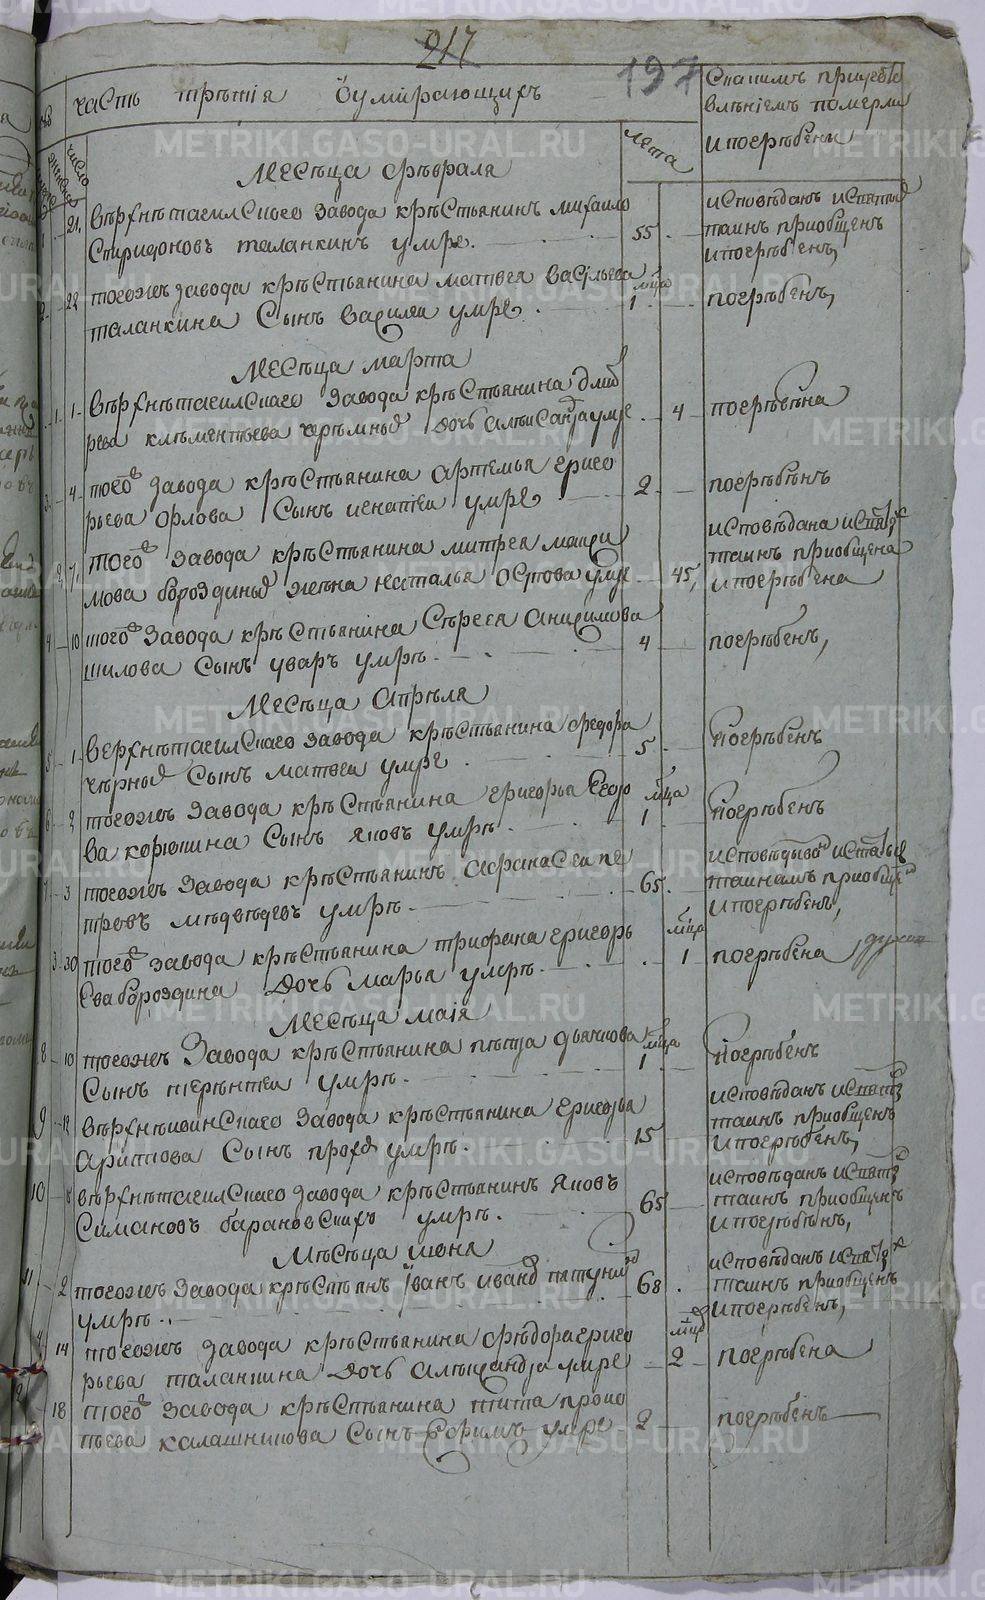 217
197
часть трѣтія Ѡумирающихъ
лета
число
Скакимъ приуготовлѣніемъ померли
и погрѣбени
Месѣца февраля
21. вѣрхнѣтагилскаго завода крѣстьянинъ михайло
Спиридоновъ таланкинъ умре. 55
исповѣданъ и святыхъ
таинъ приобщенъ
и погрѣбенъ,
2 22 тогожъ завода крѣстьянина матвея васильева
таланкина Сынъ василеи умре. 1
погрѣбенъ,
Месѣца марта
1 1 вѣрхнѣтагилскаго завода крѣстьянина дмит
рева клѣментьева черѣмныхъ дочь алѣксандра умре 4
погрѣбѣна
3 4 того завода крѣстьянина артемья григо
рьева орлова Сынъ игнатеи умре 2
погрѣбѣнъ
2 7 того завода крѣстьянина митрея макси
мова бороздиныхъ жена наталья умре 45,
исповѣдана и святыхъ
таинъ приобщена
и погрѣбена
4 10 того завода крѣстьянина Сергея анисимова
шилова Сынъ уваръ умрѣ. 4
погрѣбенъ,
Месѣца Апрѣля
5 1 верхнѣтагилскаго завода крѣстьянина федора
чернова Сынъ матвеи умре 5
погрѣбенъ
6 2 тогожъ завода крѣстьянина григорья Его
ва корюкина Сынъ яковъ умрѣ. 1
погрѣбенъ
7 3 тогожъ завода крѣстьянинъ афонасеи пе
тровъ мѣдвѣдевъ умрѣ. 65
исповѣдыванъ и святыхъ
таинамъ приобщенъ
и погрѣбенъ,
3 30 того завода крѣстьянина трифана григорь
Ева бороздина дочь марья умерѣ. 1
погрѣбена
Месѣца маія
8 10 тогожъ завода крѣстьянина пѣтра дьячкова
Сынъ терѣнтеи умрѣ. 1
погрѣбенъ
9 12 вѣрхнѣивинскаго завода крѣстьянина григорьва
Сынъ прохоръ умрѣ. 15
исповѣданъ и святыхъ
таинъ приобщенъ
и погрѣбенъ,
10 вѣрхнѣтагилскаго завода крѣстьянинъ яковъ
Симановъ барановскихъ умрѣ. 65
исповѣданъ и святыхъ
таинъ приобщенъ
и погрѣбѣнъ,
Мѣсѣца июня
11 2 тогожъ завода крѣстьянъ Іванъ ивановъ
умрѣ. 68
исповѣданъ и святыхъ
таинъ приобщенъ
и погрѣбенъ,
4 14 тогожъ завода крѣстьянина фѣдора григо
рьева таланкина дочь алѣксандра умре 2
погрѣбена
18 того завода крѣстьянина тита проко
пьева калашникова Сынъ Ефимъ умре 2
погрѣбенъ
METRIKI.GASO-URAL.RU